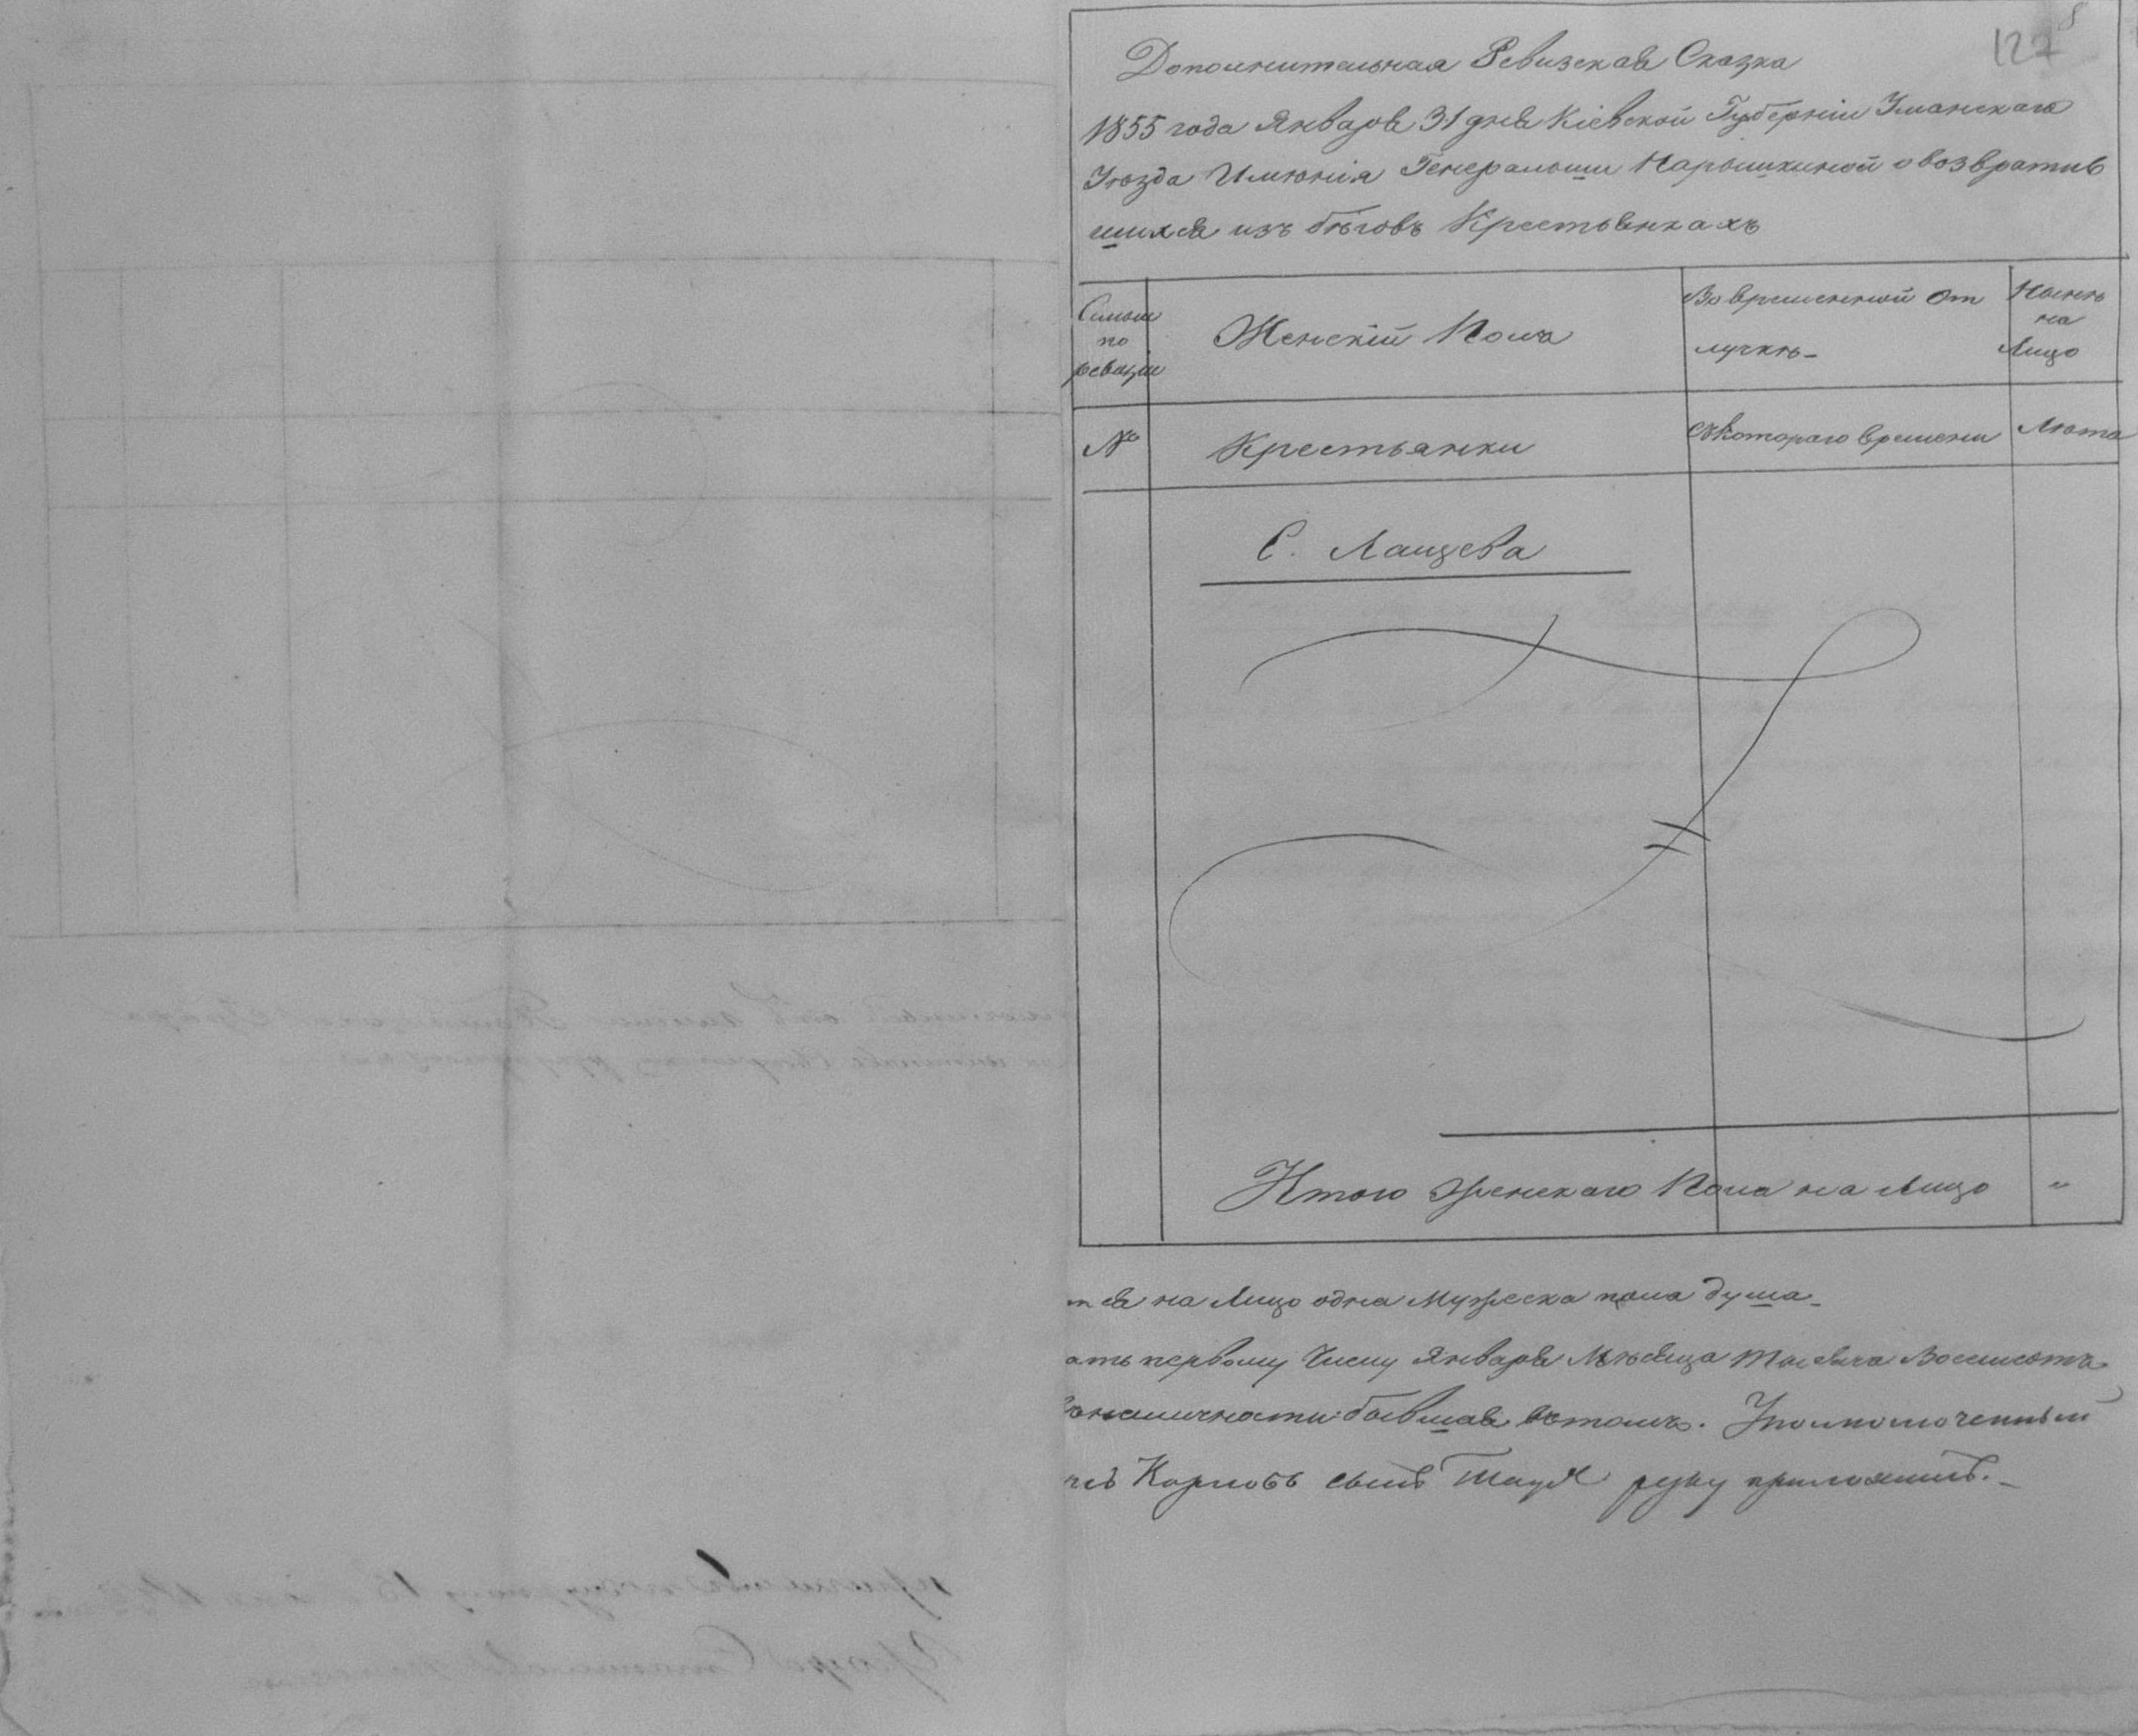 127
8
Дополнительная Ревизская Сказка
1855 года Января 31 дня Кіевской Губерніи Уманскаго
Уѣзда Имѣнія Генеральши Нарышкиной о возвратив
шихся изъ бѣговъ Крестьянкахъ
Семьи
по
ревизіи
Женскій Полъ
Во временной от
лучкѣ-
Нынѣ
на
Лицо
№
Крестьянки
Съкотораго времени
Лѣта
С. Лащева
Итого Женскаго Пола на Лицо "
тся на Лицо одна Мужеска пола душа-
ать первому Числу Января Мѣсяца Тысяча Восемьсотъ
наличности бывшая вѣтомъ. Уполномоченный
Карповъ сынъ руку приложилъ.-